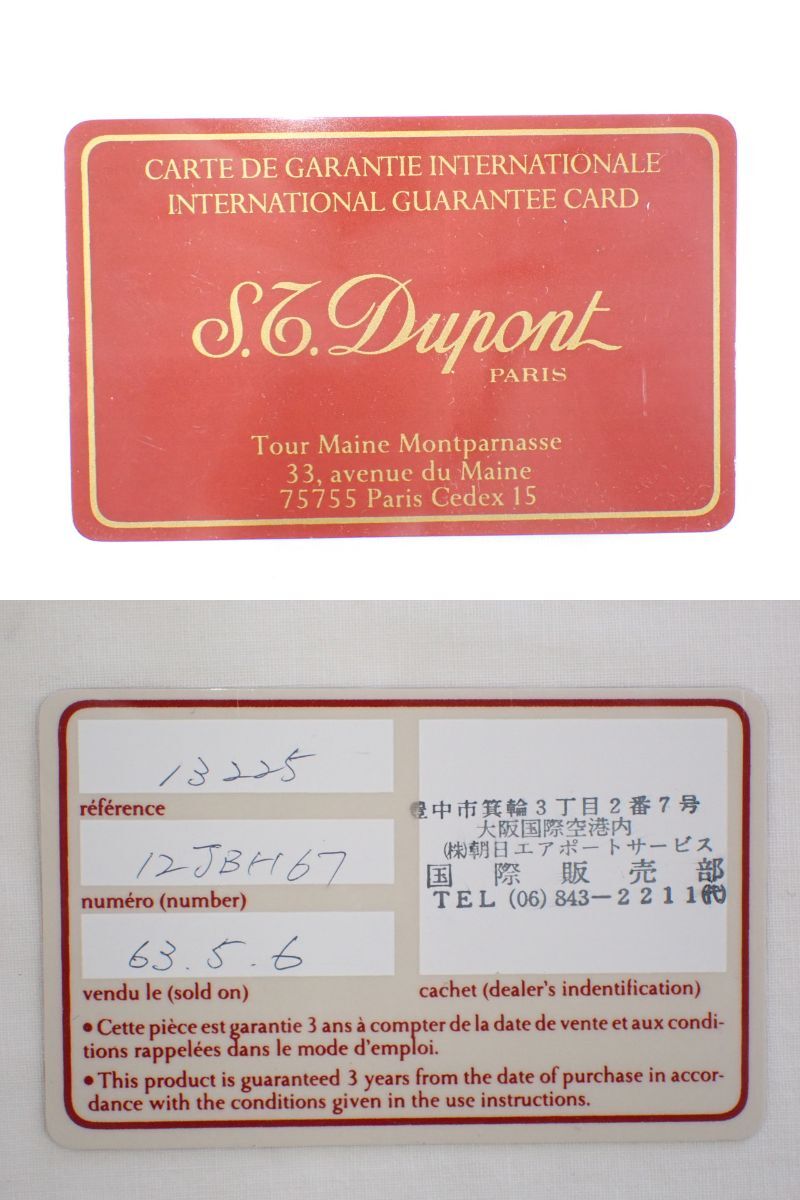 CARTE DE GARANTIE INTERNATIONALE
INTERNATIONAL GUARANTEE CARD
S.T. Dupont
PARIS
Tour Maine Montparnasse
33, avenue du Maine
75755 Paris Cedex 15
13225
référence
12JBH67
numéro (number)
63.5.6
vendu le (sold on)
豊中市箕輪3丁目2番7号
大阪国際空港内
(株)朝日エアポートサービス
国際販売部
TEL (06) 843-2211(代)
cachet (dealer's indentification)
• Cette pièce est garantie 3 ans à compter de la date de vente et aux condi-
tions rappelées dans le mode d'emploi.
• This product is guaranteed 3 years from the date of purchase in accor-
dance with the conditions given in the use instructions.